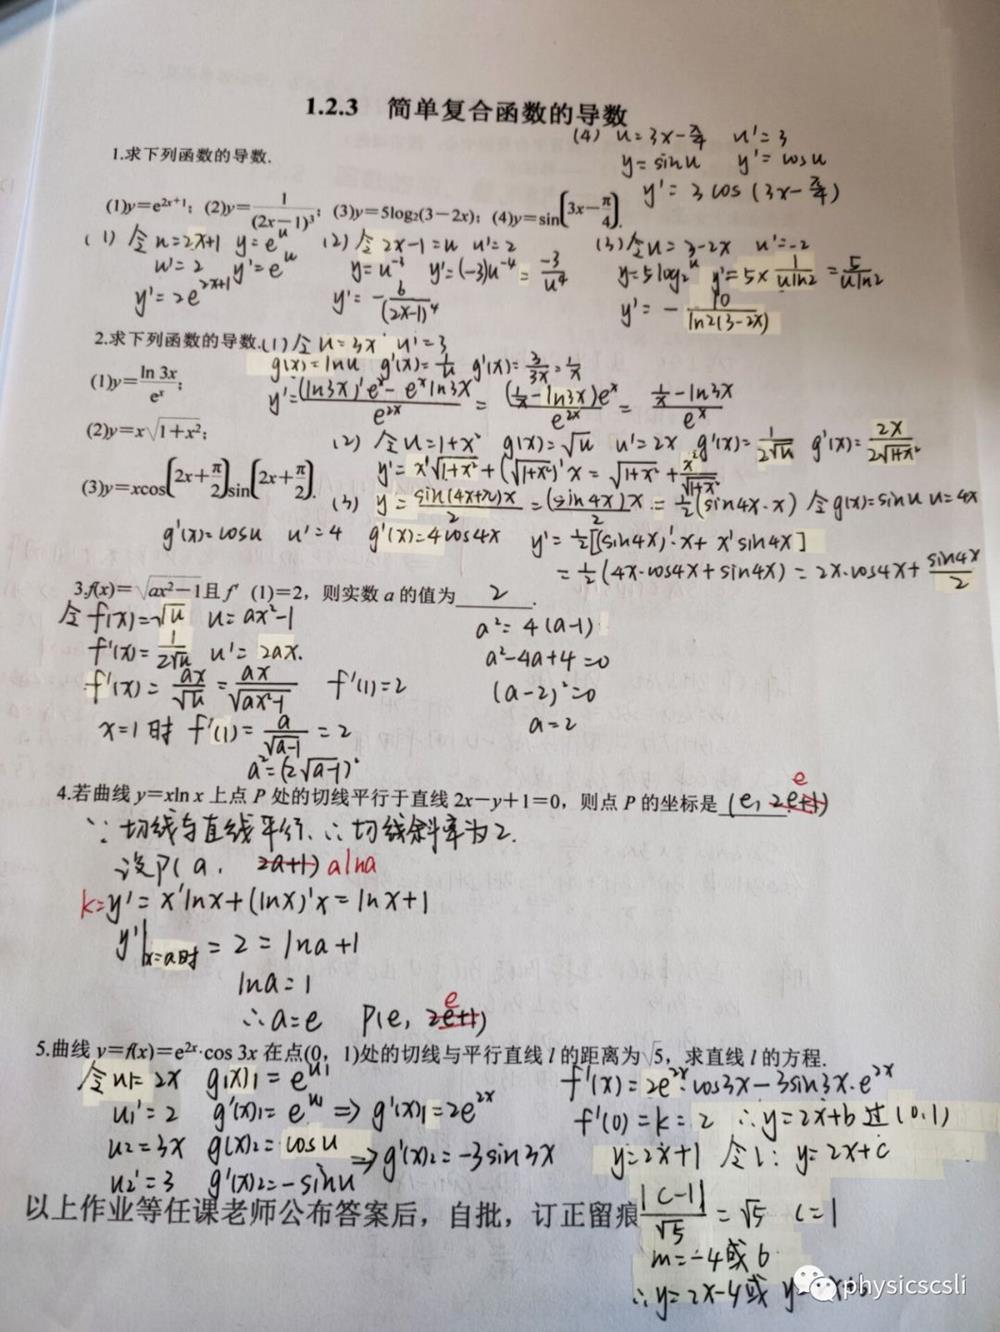 1.2.3 简单复合函数的导数
(4) u=3x-π/4 u'=3
1.求下列函数的导数.
y=sinu y'=cosu
y'=3cos(3x-π/4)
(1)y=e^{2x+1}; (2)y=1/(2x-1)³; (3)y=5log₂(3-2x); (4)y=sin[3x-π/4].
(1) 令u=2x+1 y=e^u
u'=2 y'=e^u
y'=2e^{2x+1}
(2) 令2x-1=u u'=2
y=u^{-3} y'=(-3)u^{-4}=-3/u⁴
y'=-6/(2x-1)⁴
(3) 令u=3-2x u'=-2
y=5log₂u y'=5×1/(uln2)=5/(uln2)
y'=-10/(ln2(3-2x))
2.求下列函数的导数.
(1) 令u=3x u'=3
g(x)=lnu g'(x)=1/u g'(x)=3/3x=1/x
(1)y=ln 3x/e^x;
y'=((ln3x)'e^x-e^xln3x)/e^{2x}=((1/x-ln3x)e^x)/e^{2x}=(1/x-ln3x)/e^x
(2)y=x√(1+x²);
(2) 令u=1+x² g(x)=√u u'=2x g'(x)=1/(2√u) g'(x)=2x/(2√(1+x²))
y'=x'√(1+x²)+(√(1+x²))'x=√(1+x²)+x²/√(1+x²)
(3)y=xcos[2x+π/2]sin[2x+π/2].
(3) y=sin(4x+π)x/2=(sin4x)x/2=½(sin4x·x) 令g(x)=sinu u=4x
g'(x)=cosu u'=4 g'(x)=4cos4x y'=½[(sin4x)'·x+x'sin4x]
=½(4x·cos4x+sin4x)=2x·cos4x+sin4x/2
3.f(x)=√(ax²-1)且f'(1)=2，则实数a的值为 2 .
令f(x)=√u u=ax²-1
f'(x)=1/(2√u) u'=2ax.
f'(x)=ax/√u=ax/√(ax²-1) f'(1)=2
x=1时 f'(1)=a/√(a-1)=2
a²=(2√(a-1))²
a²=4(a-1)
a²-4a+4=0
(a-2)²=0
a=2
4.若曲线y=xln x上点P处的切线平行于直线2x-y+1=0，则点P的坐标是 (e, 2e+1) e
∵切线与直线平行.∴切线斜率为2.
设P(a, 2a+1) alna
k=y'=x'lnx+(lnx)'x=lnx+1
y'|x=a时=2=lna+1
lna=1
∴a=e P(e, 2e+1) e
5.曲线y=f(x)=e^{2x}·cos 3x在点(0，1)处的切线与平行直线l的距离为√5，求直线l的方程.
令u₁=2x g(x)₁=e^{u₁}
u₁'=2 g'(x)₁=e^{u₁}⇒g'(x)₁=2e^{2x}
u₂=3x g(x)₂=cosu
u₂'=3 g'(x)₂=-sinu ⇒g'(x)₂=-3sin3x
f'(x)=2e^{2x}·cos3x-3sin3x·e^{2x}
f'(0)=k=2 ∴y=2x+b过(0,1)
y=2x+1 令l: y=2x+c
以上作业等任课老师公布答案后，自批，订正留痕
|c-1|/√5=√5 c=1
m=-4或6
∴y=2x-4或
physicscsli